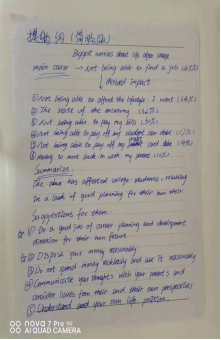 提纲词 (简略版)
Biggest worries about life after college
main cause → not being able to find a job (45%)
↓ derived impact
① Not being able to afford the lifestyle I want (44%)
② The state of the economy (42%)
③ Not being able to pay my bills
④ Not being able to pay off my student loan debt (17%)
⑤ Not being able to pay off my credit card debt
⑥ Having to move back in with my parents
Summarize.
The above has affected college students
in a lack of good planning for their own
Suggestions for them
① Do a good job of career planning and development
direction for their own future
② Dispose your money reasonably
③ Do not spend money recklessly and use it reasonably
④ Communicate your thoughts with your parents and
consider issues from their and their own perspectives
⑤ Understand your own life
nova 7 Pro
AI QUAD CAMERA